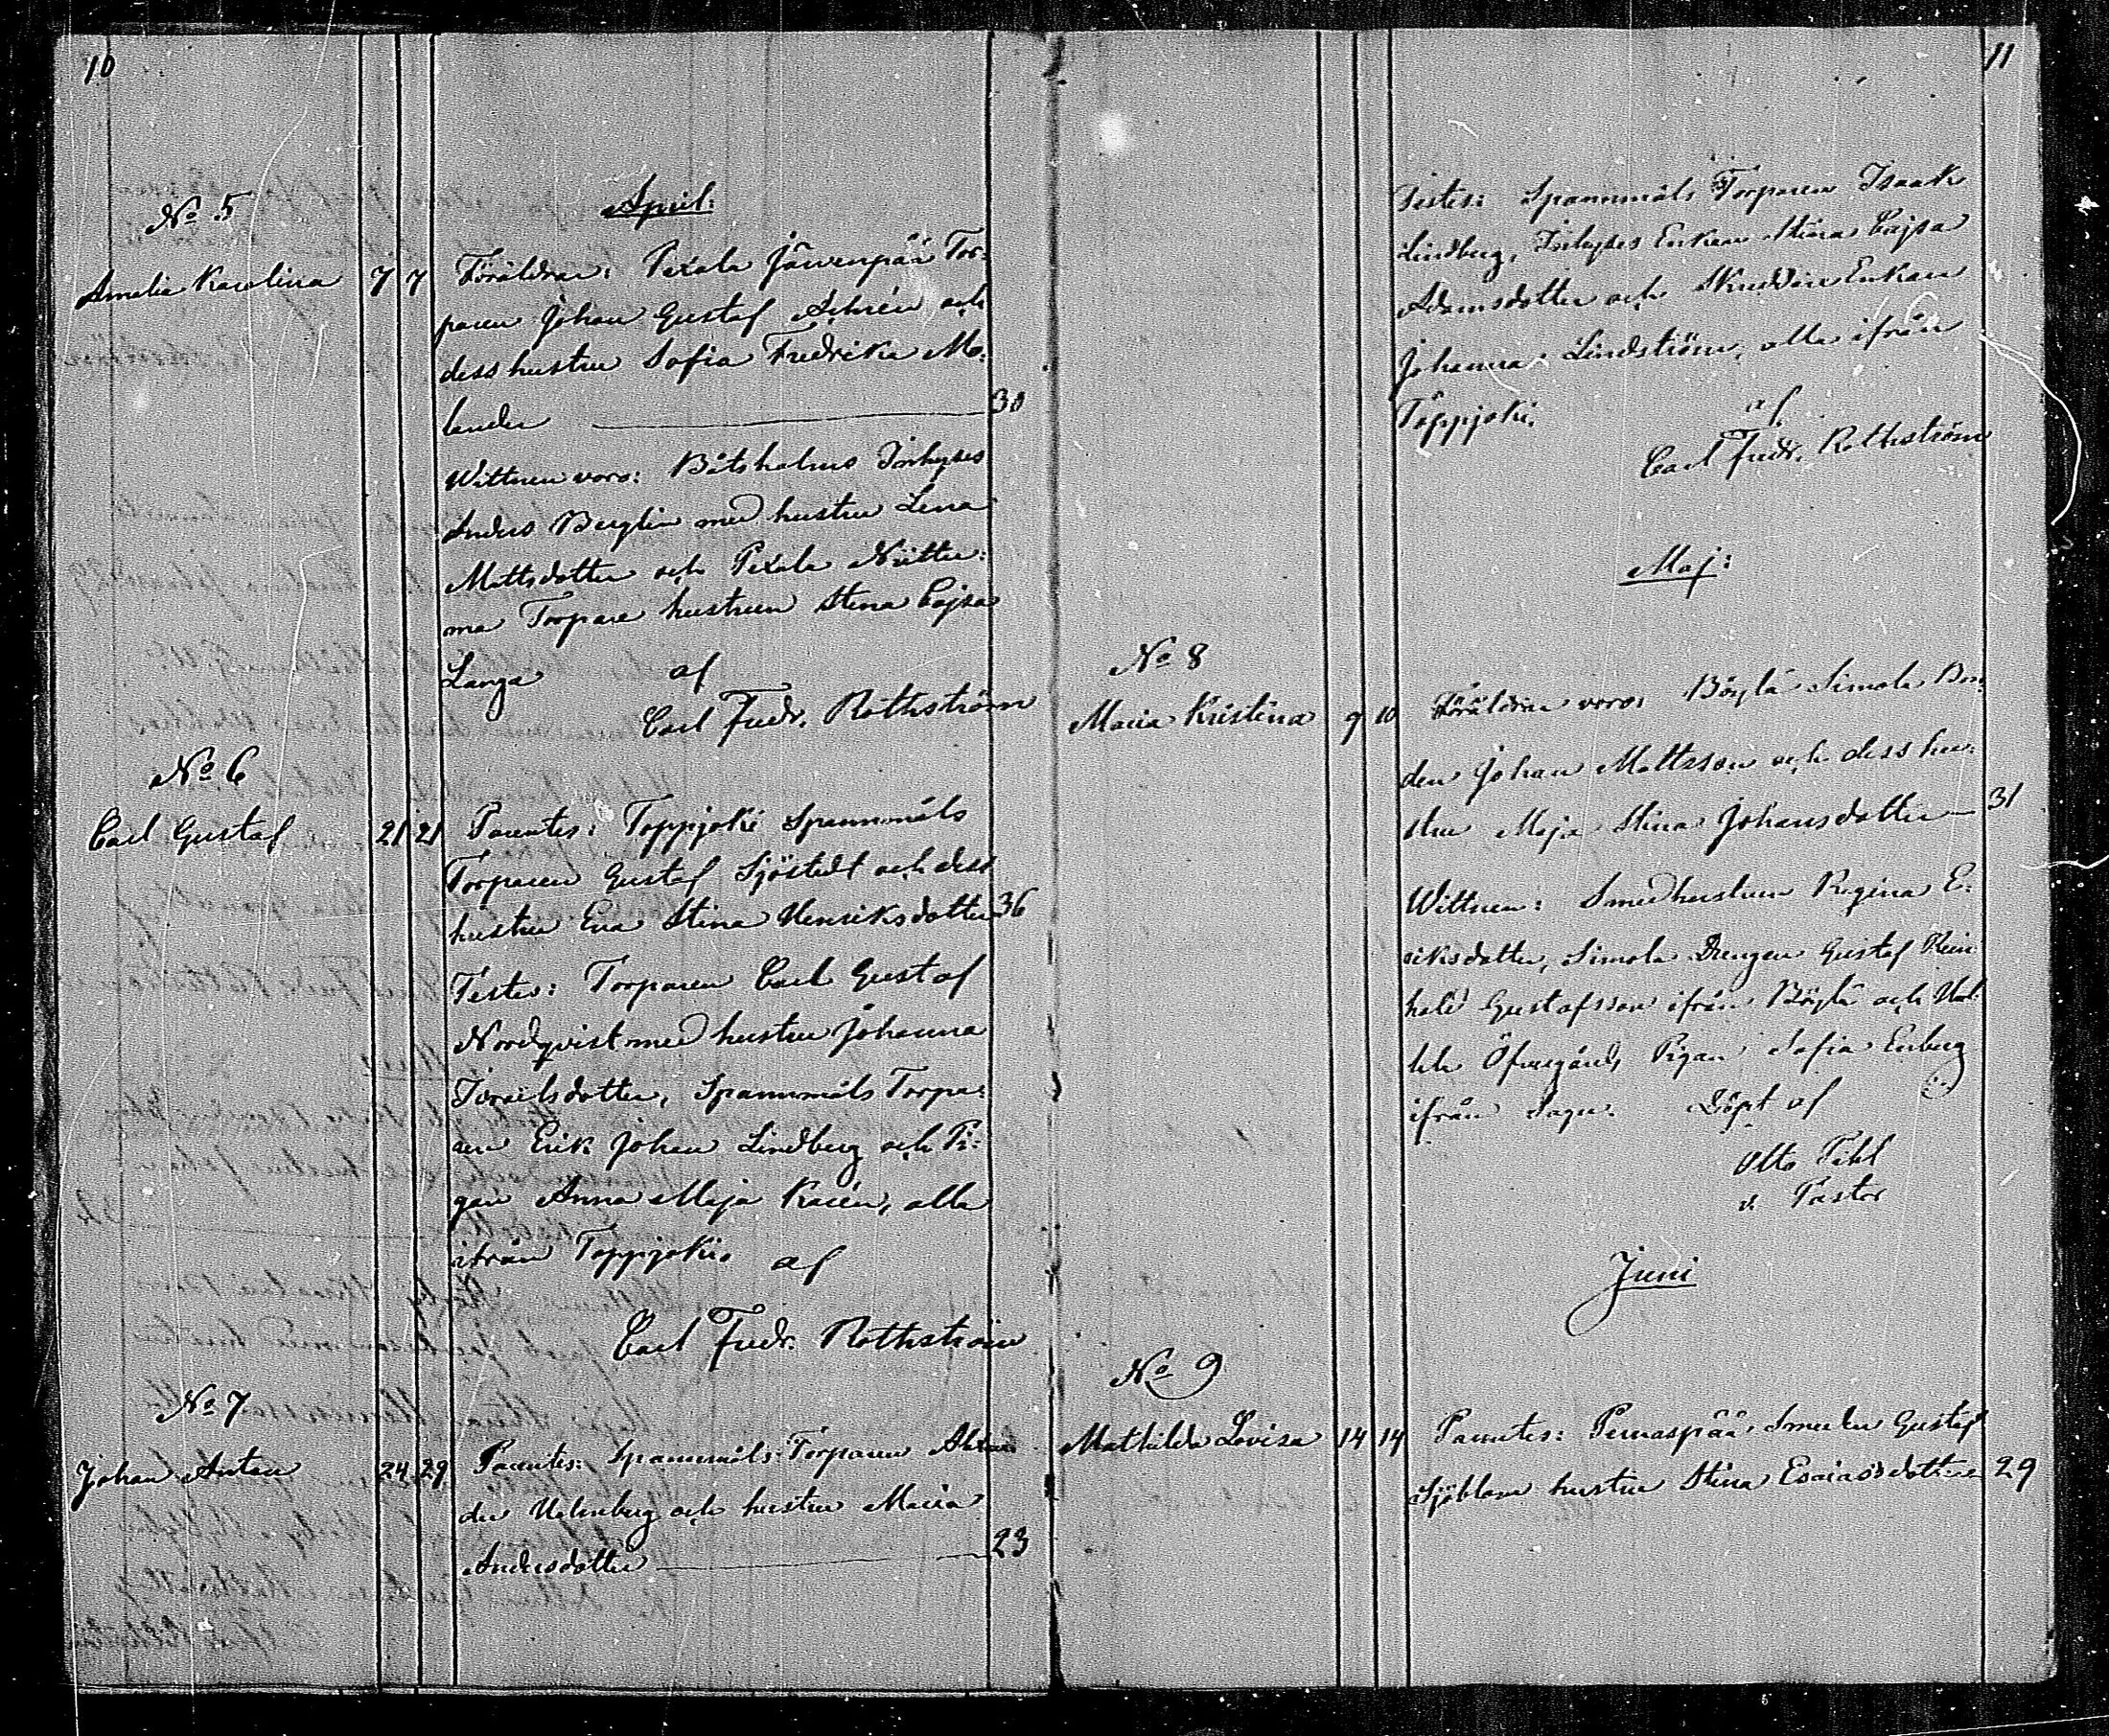 10
April:
No 5
Amelia Karolina 7 7 Föräldrar: Pixala Järvenpää Tor-
paren Johan Gustaf Åhrén och
dess hustru Sofia Fredrika Mo-
lander 30
Wittnen voro: Båtsholms Inhyses
Anders Berglin med hustru Lena
Mattsdotter och Pixala Niittu-
ma Torpare hustrun Stina Cajsa
Langa af
Carl Fredr. Rothström
No 6
Carl Gustaf 21 21 Parentes: Toppjoki Spannmåls
Torparen Gustaf Sjöstedt och dess
hustru Eva Stina Henriksdotter 36
Testes: Torparen Carl Gustaf
Nordqvist med hustru Johanna
Isräilsdotter, Spannmåls Torpa-
ren Erik Johan Lindberg och Pi-
gan Anna Maja Karén, alla
ifrån Toppjoki. af
Carl Fredr. Rothström
No 7
Johan Anton 24 29 Parentes: Spannmåls Torparen
der Holmberg och hustru Maria
Andersdotter 23
11
Testes: Spannmåls Torparen Isaak
Lindberg, Inhyses Enkan Stina Cajsa
Adamsdotter och Skräddare Enkan
Johanna Lindström, alla ifrån
Toppjoki. af
Carl Fredr. Rothström
Maj:
No 8
Maria Kristina 9 10 Föräldrar voro: Böylä Simola Bon-
den Johan Mattsson och dess hu-
stru Maja Stina Johansdotter 31
Wittnen: Smedhustrun Regina E-
riksdotter, Simola Drengen Gustaf Rein-
hold Gustafsson ifrån Böylä och
Öfvergårds Pigan Sofia Enberg
ifrån Sagu. Döpt af
Otto Tihl
v. Pastor
Juni
No 9
Mathilda Lovisa 14 14 Parentes: Pernaspää Smeden Gustaf
Sjöblom hustru Stina Esaiasdotter 29